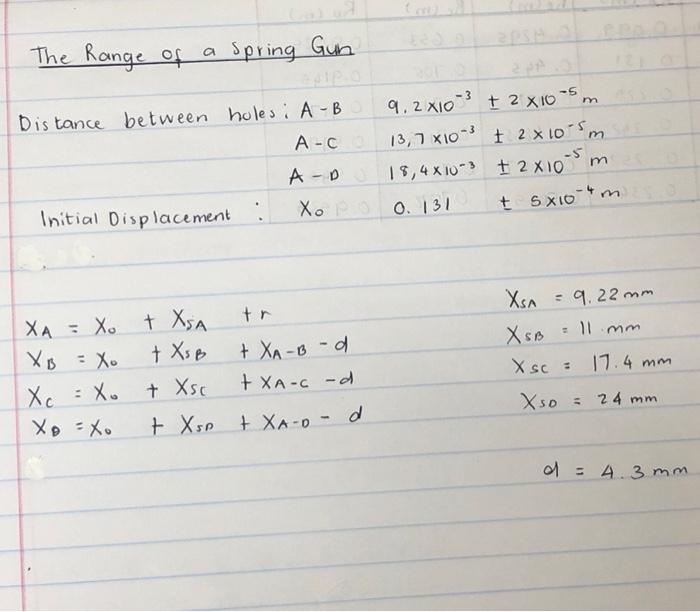 The Range of a Spring Gun
Distance between holes: A-B 9.2 x10⁻³ ± 2 x10⁻⁵ m
A-C 13,7 x10⁻³ ± 2 x 10⁻⁵ m
A-D 18,4 x10⁻³ ± 2 x10⁻⁵ m
Initial Displacement : X₀ 0.131 ± 5 x10⁻⁴ m
X_A = X₀ + X_SA + r
X_B = X₀ + X_SB + X_A-B - d
X_C = X₀ + X_SC + X_A-C - d
X_D = X₀ + X_SD + X_A-D - d
X_SA = 9.22 mm
X_SB = 11 mm
X_SC = 17.4 mm
X_SD = 24 mm
d = 4.3 mm